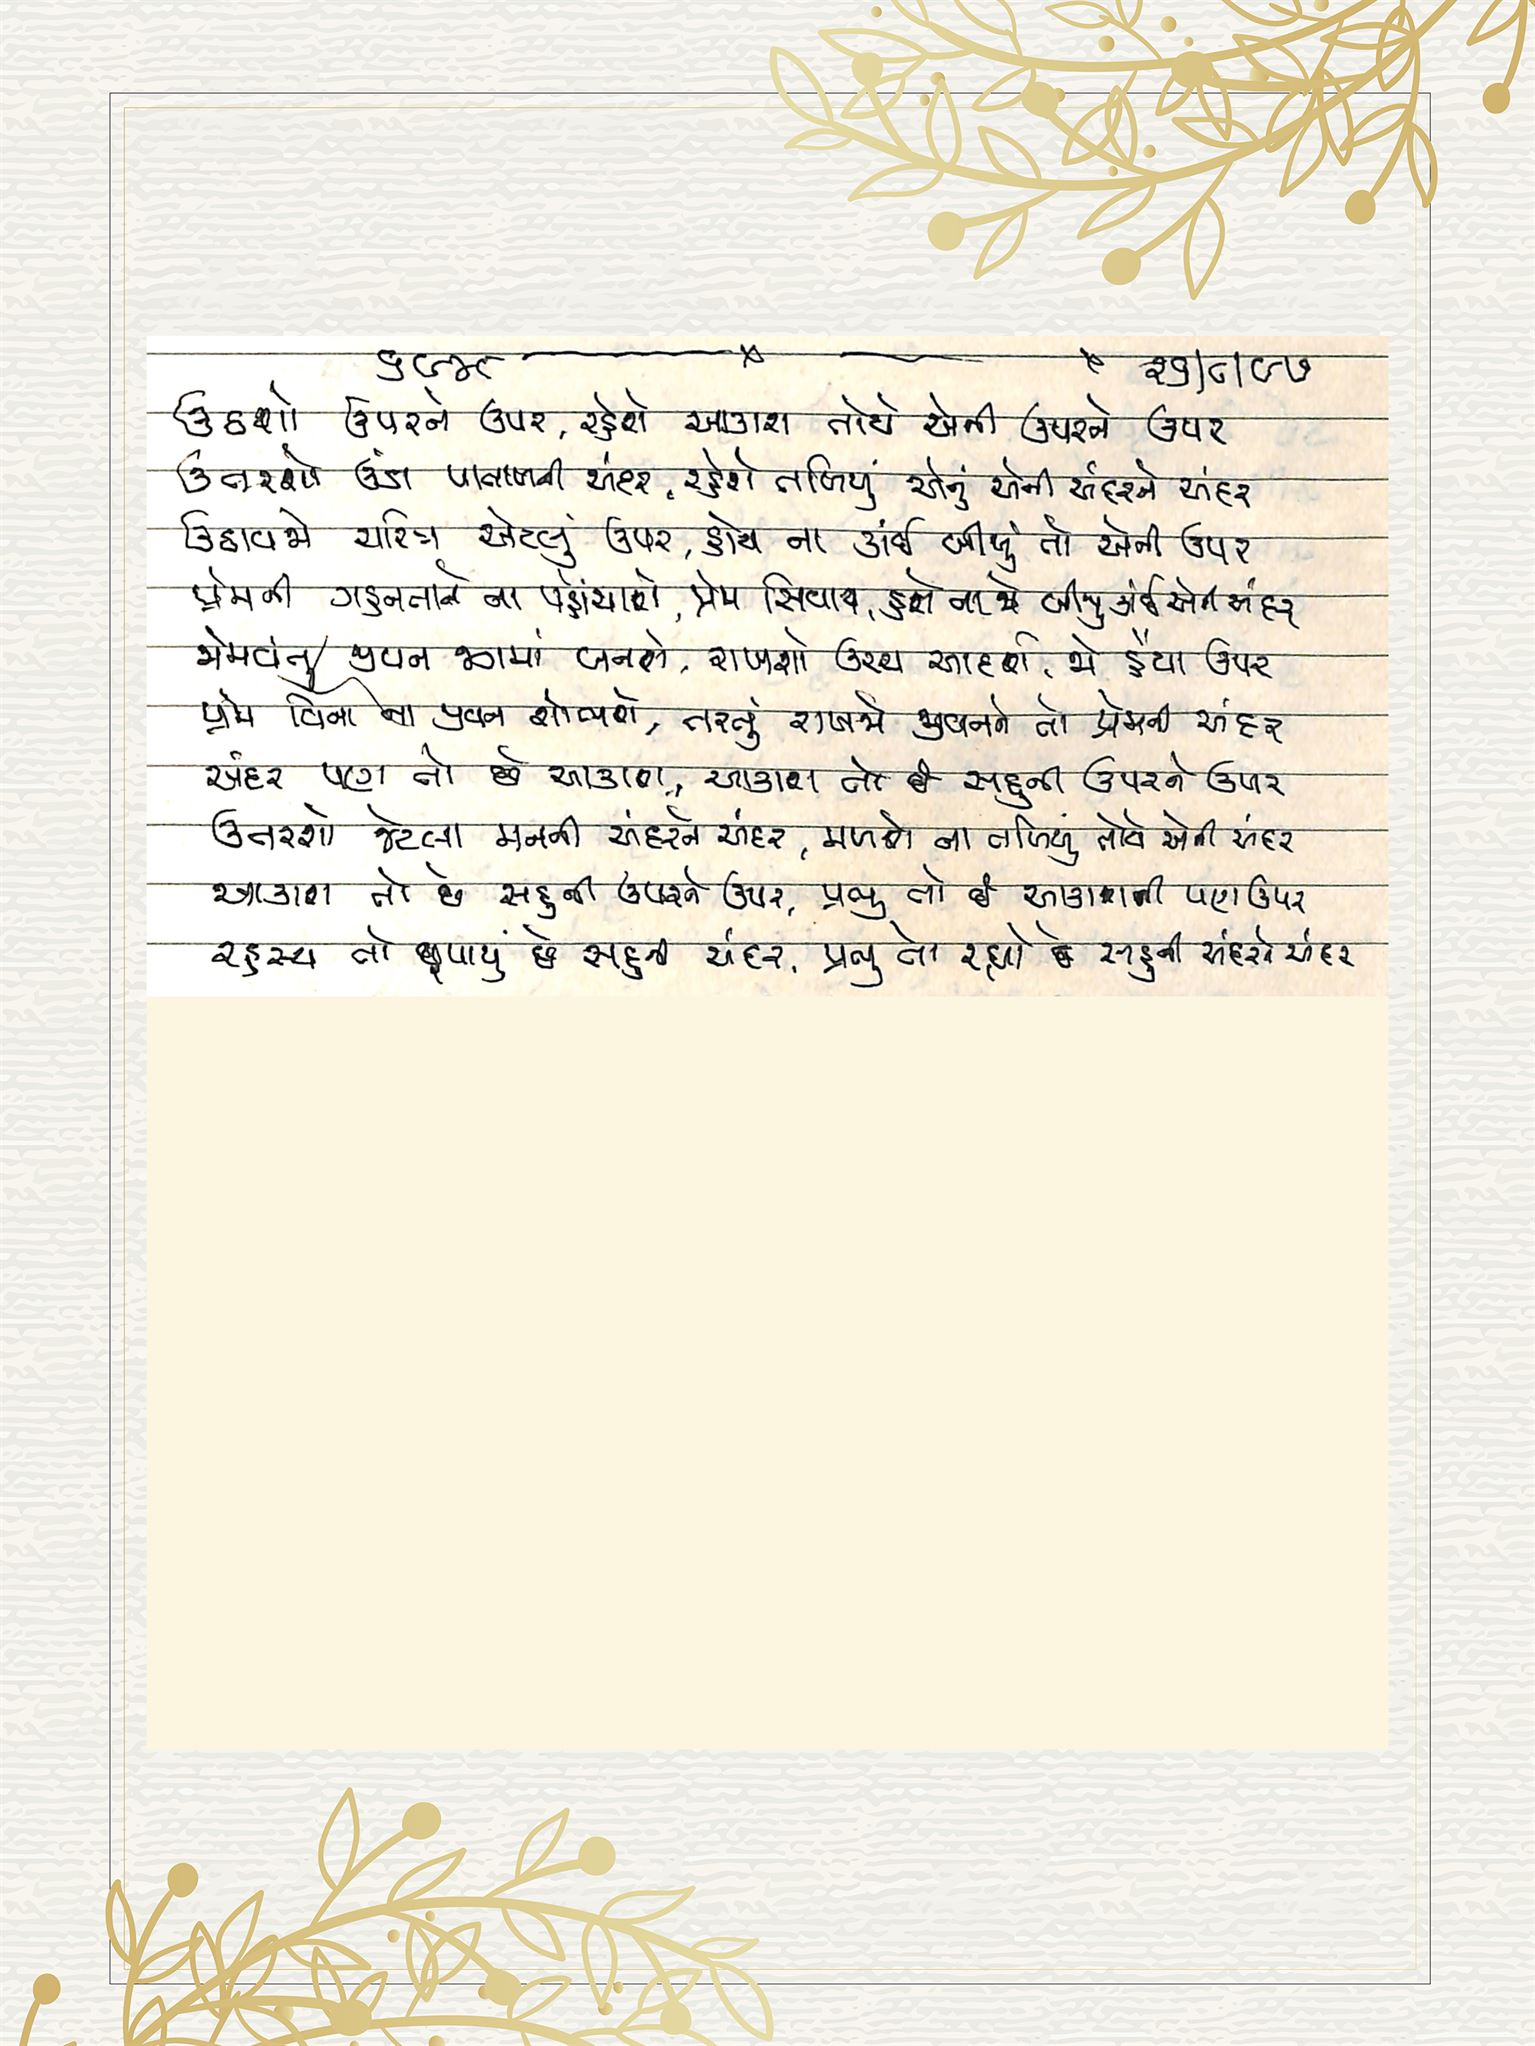 ૨૧/૮/૯૭
ઉઠશો ઉપરને ઉપર, રહેશે આકાશ તોયે એની ઉપરને ઉપર
ઉતરશો ઉંડા પાતાળની અંદર, રહેશે તળિયું એનું એની અંદરને અંદર
ઉઠાવજે ચરિત્ર એટલું ઉપર, હોય ના કાંઈ બીજું તો એની ઉપર
પ્રેમની ગહનતાને ના પહોંચાશે, પ્રેમ સિવાય, હશે ના જો બીજું કાંઈ એની અંદર
પ્રેમવંતુ જીવન જગમાં બનશે, રાખશો ઉચ્ચ આદર્શ, જો હૈયા ઉપર
પ્રેમ વિના ના જીવન શોભશે, તરતું રાખજે જીવનને તો પ્રેમની અંદર
અંદર પણ તો છે આકાશ, આકાશ તો છે સહુની ઉપરને ઉપર
ઉતરશો જેટલા મનની અંદરને અંદર, મળશે ના તળિયું તોયે એની અંદર
આકાશ તો છે સહુની ઉપરને ઉપર, પ્રભુ તો છે આકાશની પણ ઉપર
રહસ્ય તો છુપાયું છે સહુની અંદર, પ્રભુ તો રહ્યો છે સહુની અંદરને અંદર